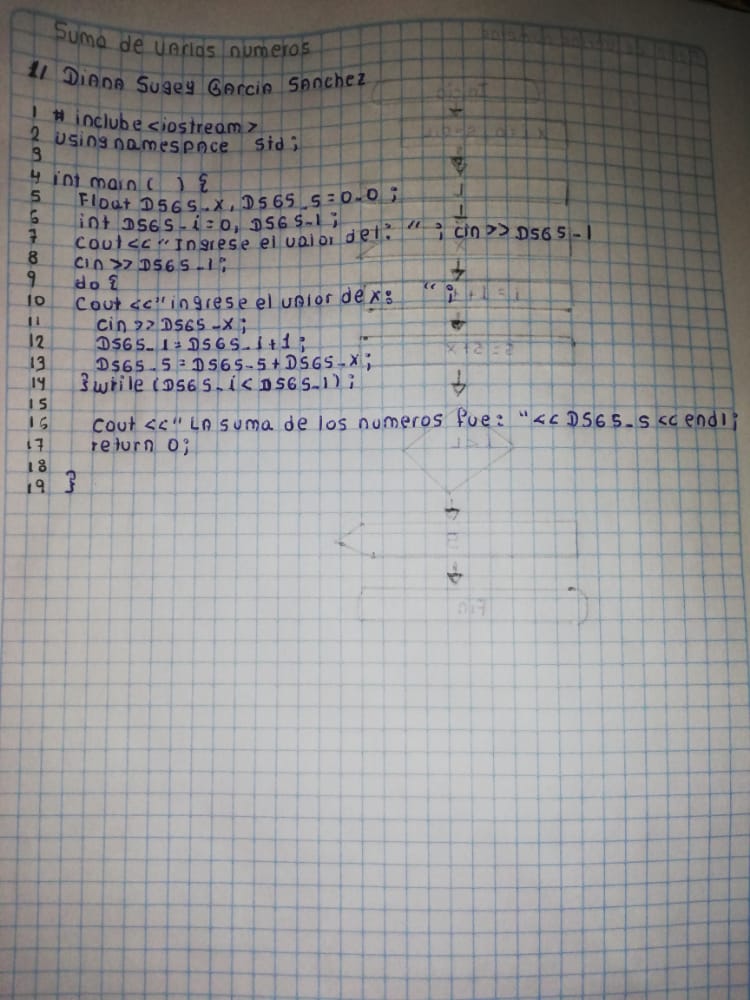 Suma de varios numeros
11 Diana Sugey Garcia Sanchez
1 # inclube <iostream>
2 using namespace std;
3
4 int main ( ) {
5 Float DSGS_x, DSGS_s = 0.0 ;
6 int DSGS_i = 0, DSGS_l ;
7 cout << "Ingrese el valor del: " ; cin >> DSGS_l
8 cin >> DSGS_l ;
9 do {
10 Cout << "ingrese el valor de x: " ;
11 cin >> DSGS_x ;
12 DSGS_i = DSGS_i + 1 ;
13 DSGS_s = DSGS_s + DSGS_x ;
14 } wrile (DSGS_i < DSGS_l) ;
15
16 cout << " La suma de los numeros fue: " << DSGS_s << endl ;
17 return 0 ;
18
19 }
Inicio
i = i + 1
s = s + x
i < L
S
Fin